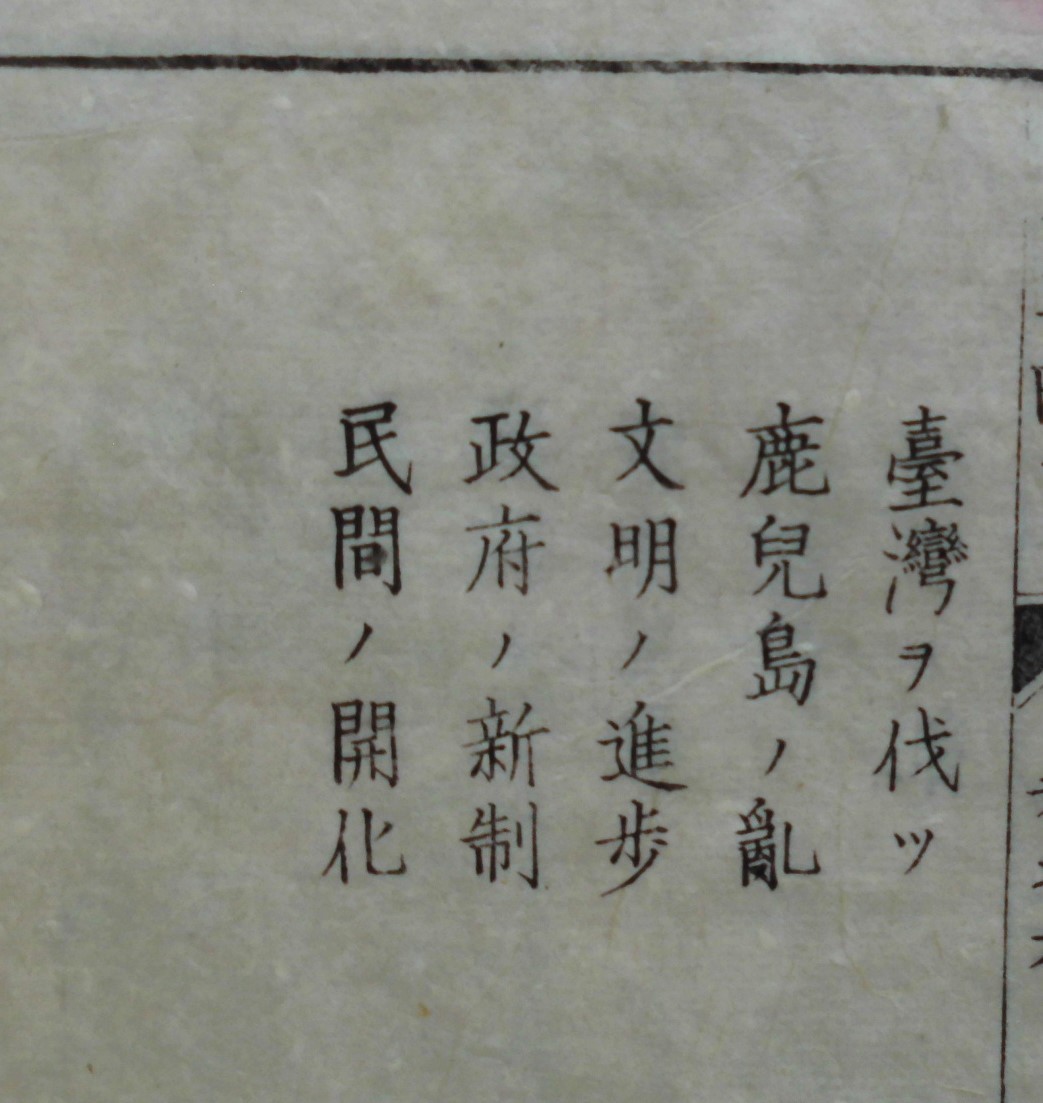 臺灣ヲ伐ツ
鹿兒島ノ亂
文明ノ進歩
政府ノ新制
民間ノ開化